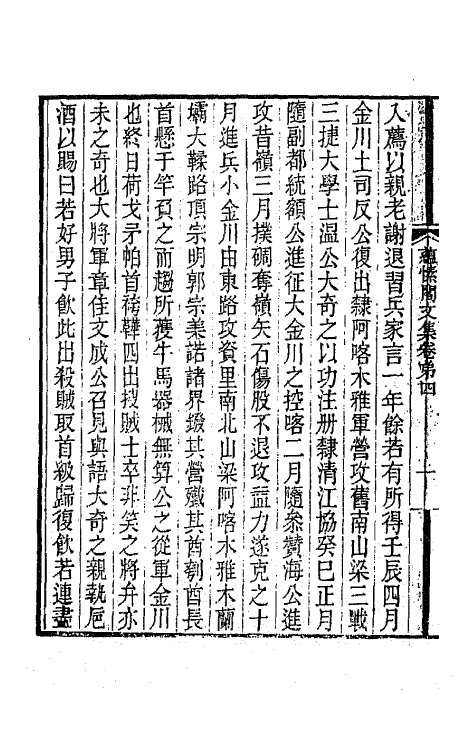 蘊愫閣文集卷第四
入薦以親老謝退習兵家言一年餘若有所得壬辰四月
金川土司反公復出隸阿喀木雅軍營攻舊南山梁三戰
三捷大學士溫公大奇之以功注册隸清江協癸巳正月
隨副都統額公進征大金川之控喀二月隨叅贊海公進
攻昔嶺三月撲碉奪嶺矢石傷股不退攻益力遂克之十
月進兵小金川由東路攻資里南北山梁阿喀木雅木蘭
壩大鞣路頂宗明郭宗美諾諸界撥其營殲其酋刳酋長
首懸于竿負之而趨所獲牛馬器械無算公之從軍金川
也終日荷戈矛帕首袴鞾四出搜賊士卒非笑之將弁亦
未之奇也大將軍章佳文成公召見與語大奇之親執卮
酒以賜曰若好男子飲此出殺賊取首級歸復飲若連盡